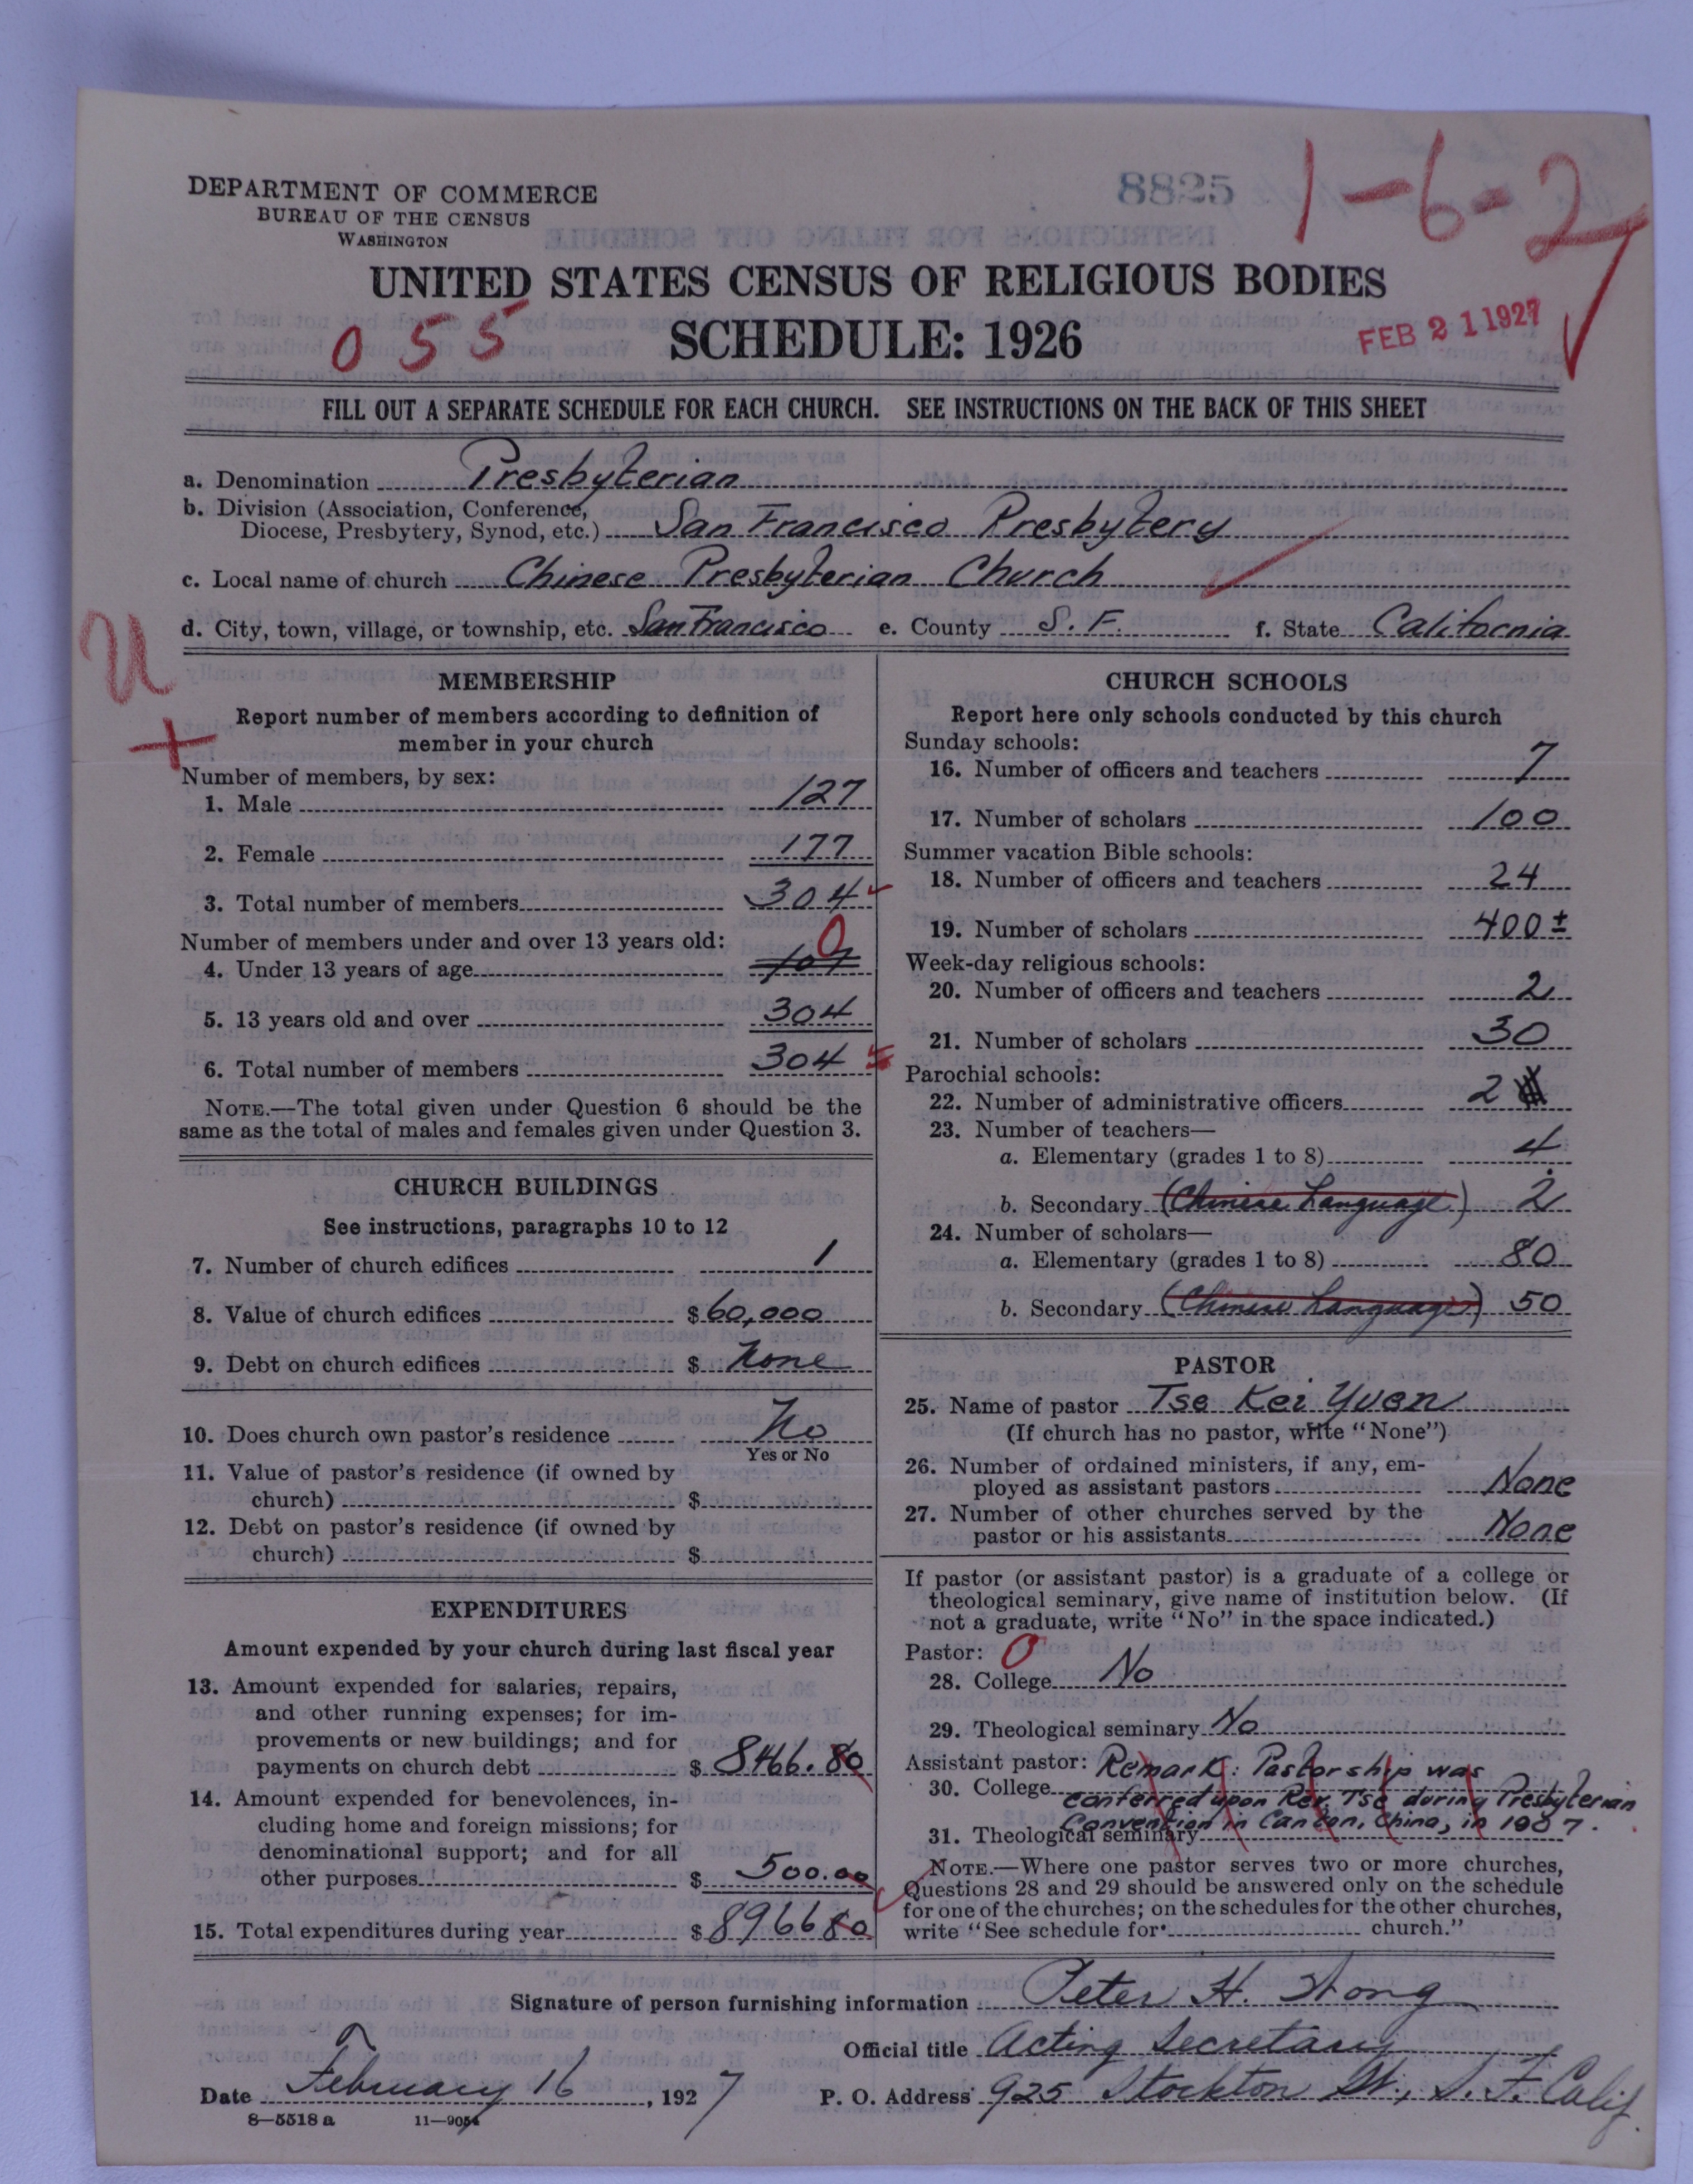 8825
1-6-2
DEPARTMENT OF COMMERCE
BUREAU OF THE CENSUS
WASHINGTON
UNITED STATES CENSUS OF RELIGIOUS BODIES
055
SCHEDULE: 1926
FEB 21 1927
FILL OUT A SEPARATE SCHEDULE FOR EACH CHURCH. SEE INSTRUCTIONS ON THE BACK OF THIS SHEET
a. Denomination Presbyterian
b. Division (Association, Conference,
Diocese, Presbytery, Synod, etc.) San Francisco Presbytery
c. Local name of church Chinese Presbyterian Church
d. City, town, village, or township, etc. San Francisco e. County S. F. f. State California
U
+
MEMBERSHIP
Report number of members according to definition of
member in your church
Number of members, by sex:
1. Male 127
2. Female 177
3. Total number of members 304
Number of members under and over 13 years old:
0
4. Under 13 years of age
5. 13 years old and over 304
6. Total number of members 304
NOTE.—The total given under Question 6 should be the
same as the total of males and females given under Question 3.
CHURCH BUILDINGS
See instructions, paragraphs 10 to 12
7. Number of church edifices 1
8. Value of church edifices $ 60,000
9. Debt on church edifices $ None
10. Does church own pastor's residence No
Yes or No
11. Value of pastor's residence (if owned by
church) $
12. Debt on pastor's residence (if owned by
church) $
EXPENDITURES
Amount expended by your church during last fiscal year
13. Amount expended for salaries, repairs,
and other running expenses; for im-
provements or new buildings; and for
payments on church debt $ 8466.80
14. Amount expended for benevolences, in-
cluding home and foreign missions; for
denominational support; and for all
other purposes $ 500.00
15. Total expenditures during year $ 8966 80
CHURCH SCHOOLS
Report here only schools conducted by this church
Sunday schools:
16. Number of officers and teachers 7
17. Number of scholars 100
Summer vacation Bible schools:
18. Number of officers and teachers 24
19. Number of scholars 400 ±
Week-day religious schools:
20. Number of officers and teachers 2
21. Number of scholars 30
Parochial schools:
22. Number of administrative officers 2
23. Number of teachers—
a. Elementary (grades 1 to 8) 4
b. Secondary (Chinese Language) 2
24. Number of scholars—
a. Elementary (grades 1 to 8) 80
b. Secondary (Chinese Language) 50
PASTOR
25. Name of pastor Tse Kei Yuen
(If church has no pastor, write "None")
26. Number of ordained ministers, if any, em-
ployed as assistant pastors None
27. Number of other churches served by the
pastor or his assistants None
If pastor (or assistant pastor) is a graduate of a college or
theological seminary, give name of institution below. (If
not a graduate, write "No" in the space indicated.)
Pastor: 0
28. College No
29. Theological seminary No
Assistant pastor: Remark: Pastorship was
30. College conferred upon Rev. Tse during Presbyterian
Convention in Canton, China, in 1907.
31. Theological seminary
NOTE.—Where one pastor serves two or more churches,
Questions 28 and 29 should be answered only on the schedule
for one of the churches; on the schedules for the other churches,
write "See schedule for church."
Signature of person furnishing information Peter H. Wong
Official title Acting Secretary
Date February 16, 1927 P. O. Address 925 Stockton St., S. F. Calif.
8—5518 a 11—9054